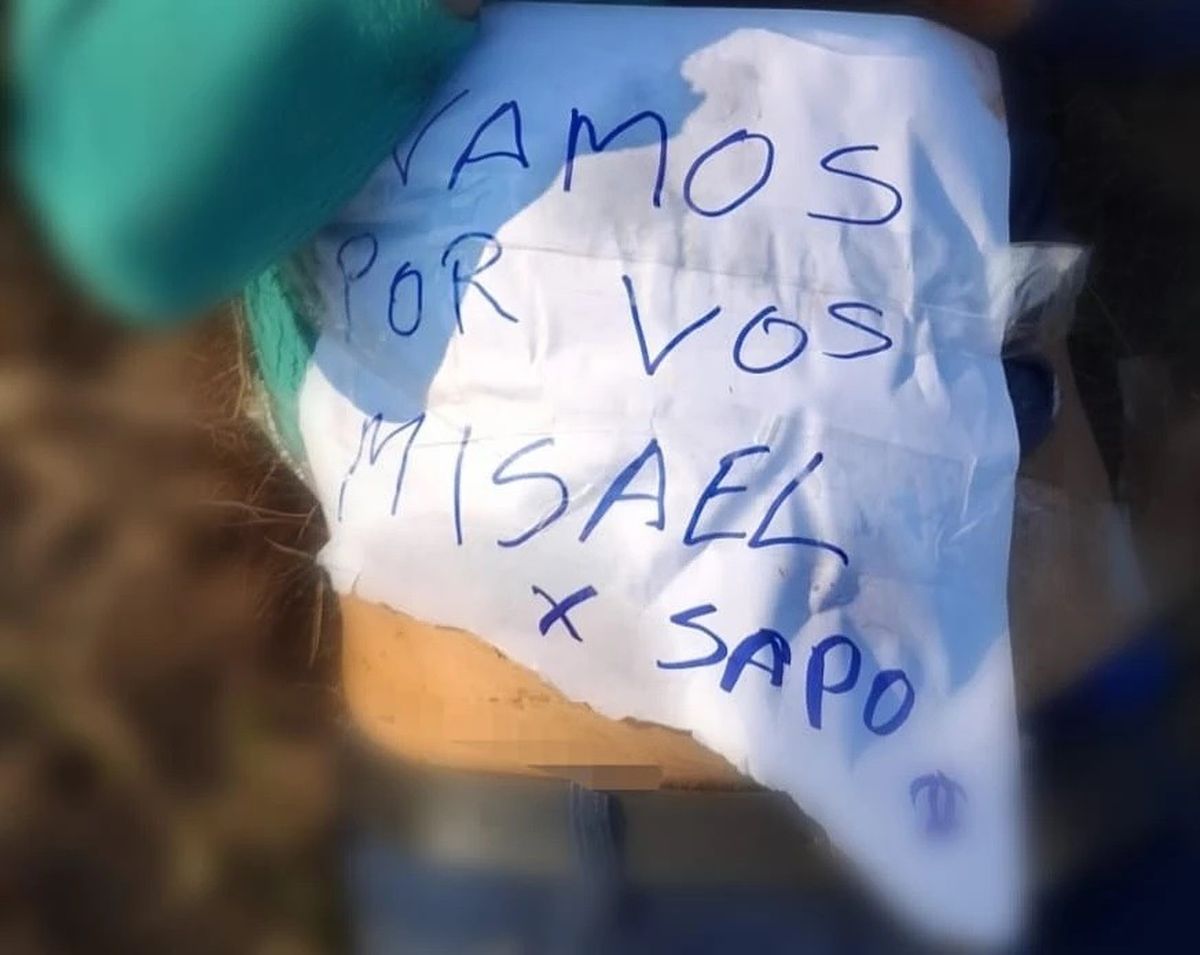 VAMOS
POR VOS
MISAEL
X SAPO